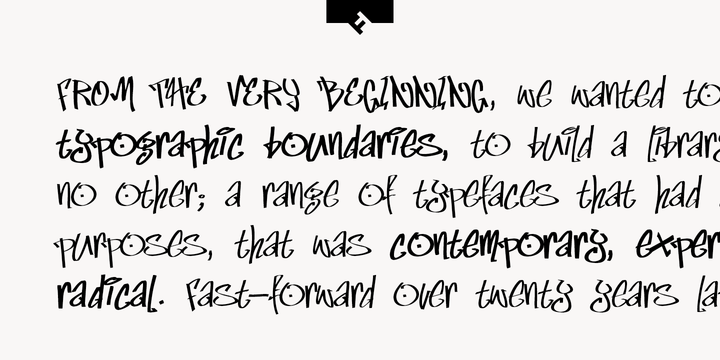 FROM THE VERY BEGINNING, we wanted to
typographic boundaries, to build a library
no other; a range of typefaces that had
purposes, that was contemporary, exper
radical. Fast-forward over twenty years la